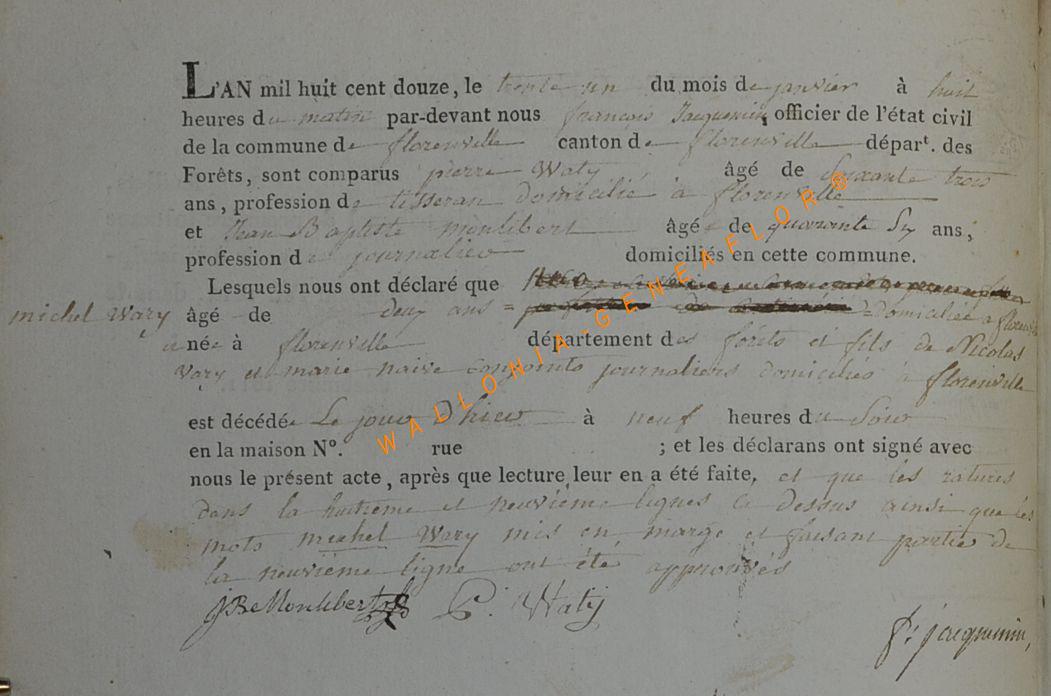 L'AN mil huit cent douze, le trente un du mois de janvier à huit
heures du matin par-devant nous françois Jacquemin, officier de l'état civil
de la commune de florenville canton de florenville départ. des
Forêts, sont comparus pierre Waty âgé de Soixante trois
ans, profession de tisseran domicilié à florenville
et Jean Baptiste monlibert âgé de quarante Six ans,
profession de journalier domiciliés en cette commune.
Lesquels nous ont déclaré que
michel Wary âgé de deux ans = = domiciliée a florenville
née à florenville département des forêts et fils de Nicolas
Wary et marie naive conjoints journaliers domiciliés à florenville
est décédé Le jour D'hier à neuf heures du Soir
en la maison N°. rue ; et les déclarans ont signé avec
nous le présent acte, après que lecture leur en a été faite, et que les ratures
dans la huitième et neuvième lignes ci dessus ainsi que les
mots michel Wary mis en marge et faisant partie de
la neuvième ligne ont été approuvés
JBe Monlibert P. Waty
fs jacquemin,
WALLONIA-GENEAFLOR®